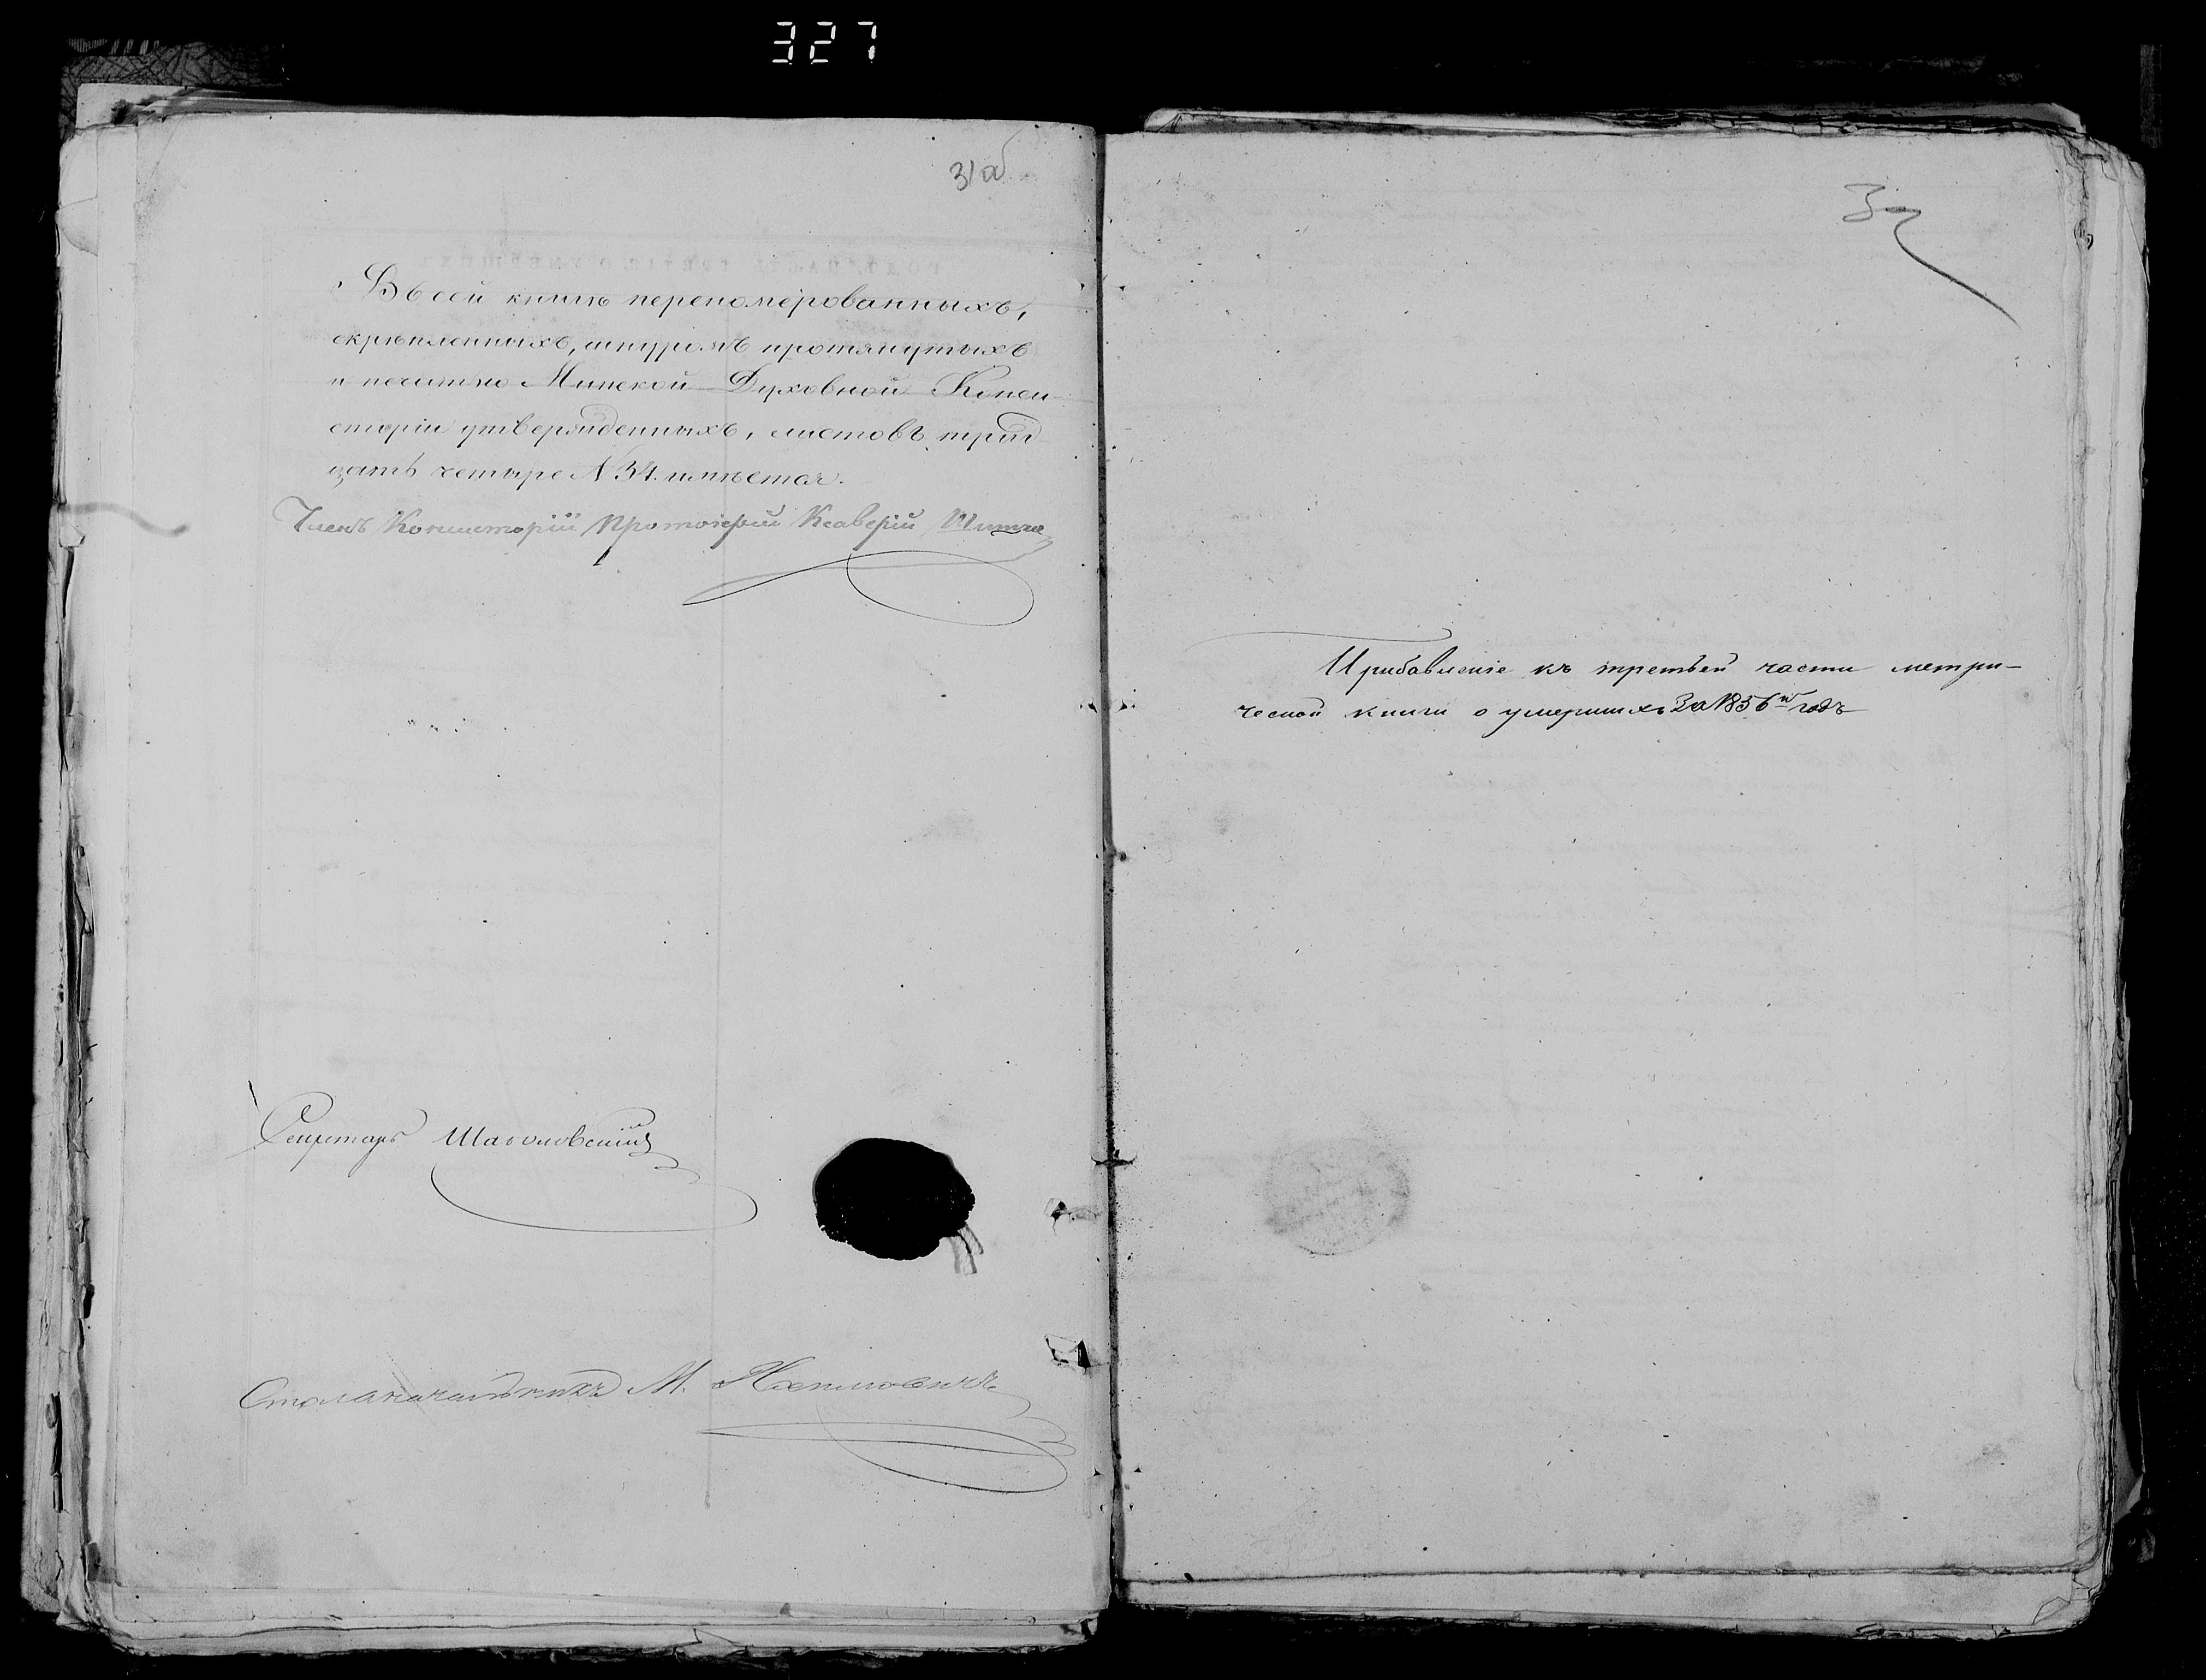 327
31 об
Въ сей книгѣ перепомерованныхъ,
скрѣпленныхъ, шнуромъ протянутыхъ
и печатью Минской Духовной Конси-
сторіи утвержденныхъ, листовъ трид-
цать четыре N 34. имѣется.
Членъ Консисторіи Протоіерей Ксаверій
Секретарь
Столоначальникъ М.
32
Прибавленіе къ третьей части метри-
ческой книги о умершихъ За 1856й годъ